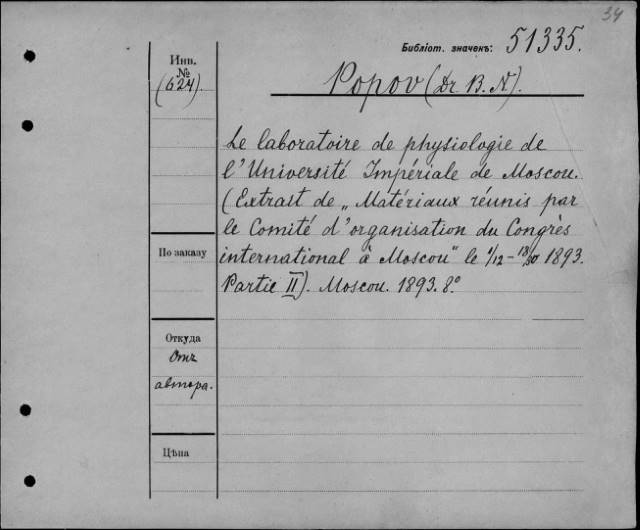 34
Библіот. значекъ: 51335.
Инв.
№
(624).
Popov (Dr B. N).
Le laboratoire de physiologie de
l'Université Impériale de Moscou.
(Extrait de „Matériaux réunis par
le Comité d'organisation du Congrès
international à Moscou" le 1/12 – 18/30 1893.
Partie II). Moscou. 1893. 8°
По заказу
Откуда
Отъ
автора.
Цѣна